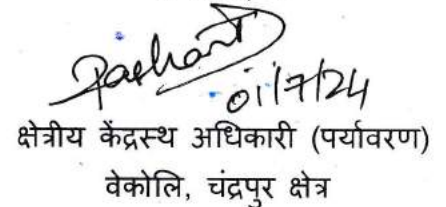 Prashant
01/7/24
क्षेत्रीय केंद्रस्थ अधिकारी (पर्यावरण)
वेकोलि, चंद्रपुर क्षेत्र